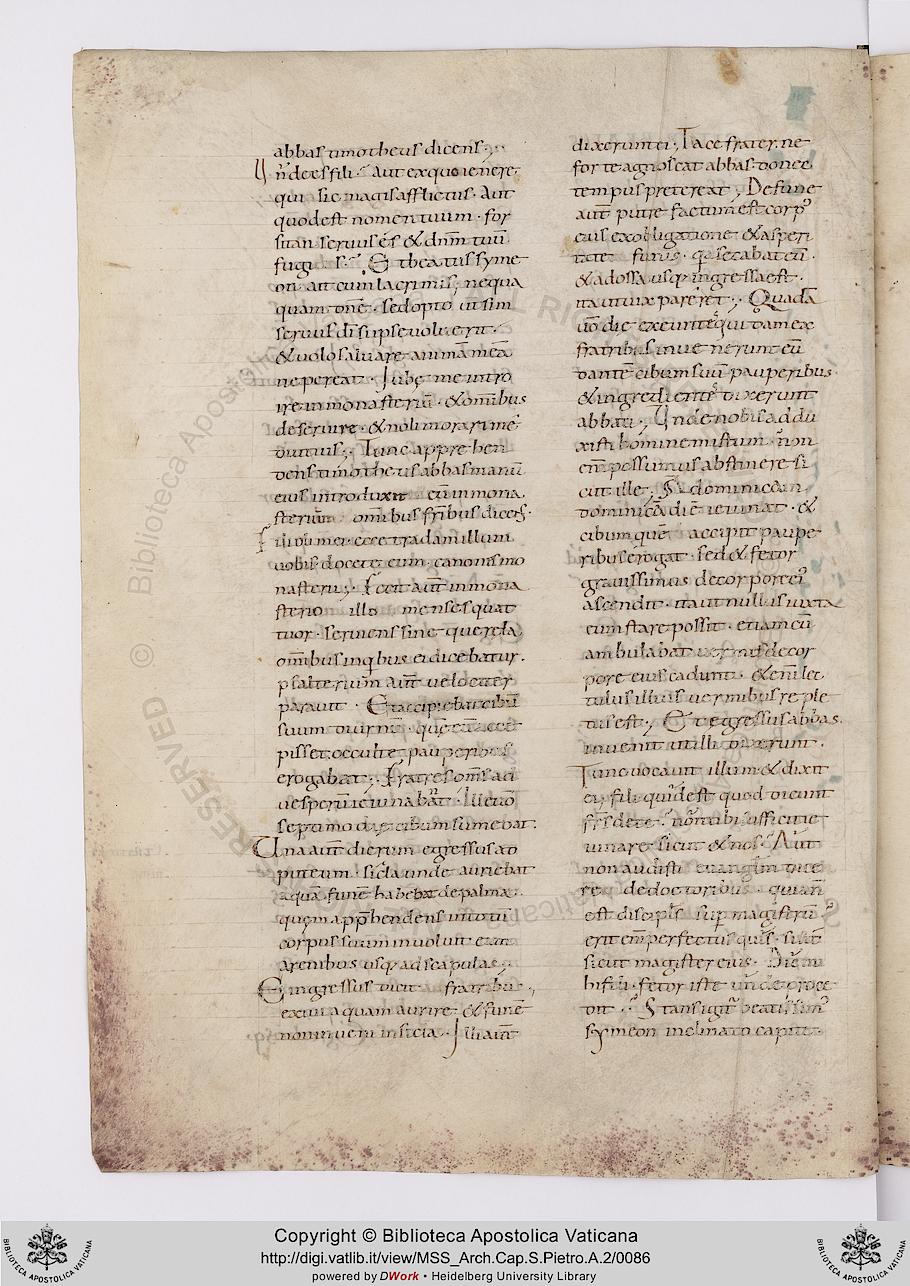 abbas timotheus dicens ;
Unde es fili · Aut ex quo genere ·
qui sic magis afflictus · Aut
quod est nomen tuum · for
sitan seruus es & dnm tuu
fugis · Et beatus syme
on ait cum lacrimis ; nequa
quam dne · sed opto ut sim
seruus di si ipse uoluerit ·
& uolo saluare anima mea
ne pereat · Iube me intro
ire in monasteriu · & omnibus
deseruire · & noli morari me
diutius ; Tunc appre hen
dens timotheus abbas manu
eius introduxit eu in mona
steriu omibus fribus dicens ·
Filii mei · ecce tradam illum
uobis · docete eum · canonis mo
nasterii ; Fecit aut in mona
sterio illo menses quat
tuor · seruiens sine querela
omibus in qbus ei dicebatur ·
psalterium aut uelociter
parauit · Et accipiebat cibu
suum
pisset occulte pauperibus
erogabat ; Fratres oms ad
uesperu ieiunabat · Ille uo
septimo die cibum sumebat ·
Una aut dierum egressus ad
puteum · sicla unde auriebat
aqua · fune habebat de palma ·
quem apphendens in totu
corpus suum inuoluit
a renibus usq; ad scapulas ;
Et ingressus dicit fratribus ,
exiui aquam aurire · & fune
non inueni in sicla · Illi aut
dixerunt ei · Tace frater · ne
forte agnoscat abbas · donec
tempus pretereat ; De fune
aut putrefactum est corp
eius ex obligatione & asperi
tate funis · qa secabat eu ·
& ad ossa usq; ingressa est ·
ita ut uix pareret ; Quada
uo die exeuntes quidam ex
fratribus inuenerunt eu
dante cibum suu pauperibus ·
& ingredientes dixerunt
abbati · Unde nobis addu
xisti hominem istum · non
em possumus abstinere si
cut ille ; A dominica in
dominica die ieiunat · &
cibum que accipit paupe
ribus erogat · sed & fetor
grauissimus de corpore ei
ascendit · ita ut nullus iuxta
eum stare possit · etiam cu
ambulabat uermes de cor
pore eius cadunt · & en lec
tulus illius uermibus reple
tus est ; Et egressus abbas ·
inuenit ut illi dixerunt ·
Tunc uocauit illum & dixit
ei ; fili quid est quod dicunt
frs de te · non tibi sufficit ie
iunare sicut & nos · Aut
non audisti euanglm dice
re de doctoribus · quia n
est discipls sup magistru ·
erit em perfectus quis · si sit
sicut magister eius · Dic m
hi fili · fetor iste unde proce
dit · Stans igitr beatissim
symeon inclinato capite ·
Copyright © Biblioteca Apostolica Vaticana
http://digi.vatlib.it/view/MSS_Arch.Cap.S.Pietro.A.2/0086
powered by DWork • Heidelberg University Library